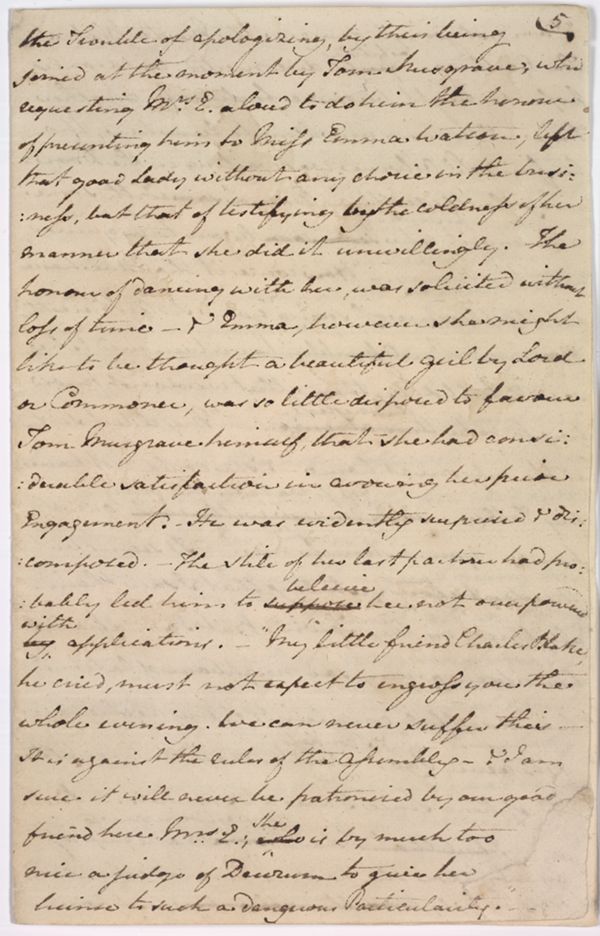 5
the Trouble of apologizing, by their being
joined at the moment by Tom Musgrave, who
requesting Mrs. E. aloud to do him the honour
of presenting him to Miss Emma Watson, left
that good Lady without any choice in the busi:
:ness, but that of testifying by the coldness of her
manner that she did it unwillingly. The
honour of dancing with her, was solicited without
loss of time — & Emma, however she might
like to be thought a beautiful girl by Lord
or Commoner, was so little disposed to favour
Tom Musgrave himself, that she had consi:
:derable satisfaction in avowing her prior
Engagement. — He was evidently surprised & dis:
:composed. — The stile of her last partner had pro:
believe
:bably led him to suppose her not overpowered
with
by applications. — "My little friend Charles Blake,
he cried, must not expect to engross you the
whole evening. We can never suffer this —
It is against the rules of the Assembly — & I am
sure it will never be patronised by our good
she
friend here Mrs. E.; who is by much too
nice a judge of Decorum to give her
license to such a dangerous Particularity." —